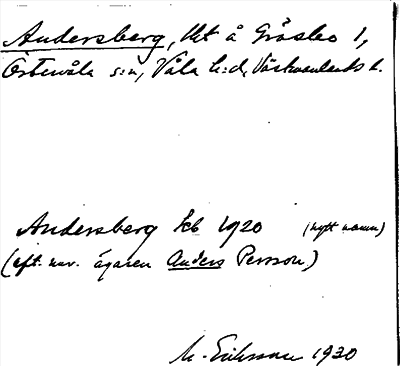 Andersberg, lht å Gräsbo 1,
Östervåla s:n, Våla h:d, Västmanlands l.
Andersberg kb 1920 (nytt namn)
(eft. nuv. ägaren Anders Persson)
M. Eriksson 1930